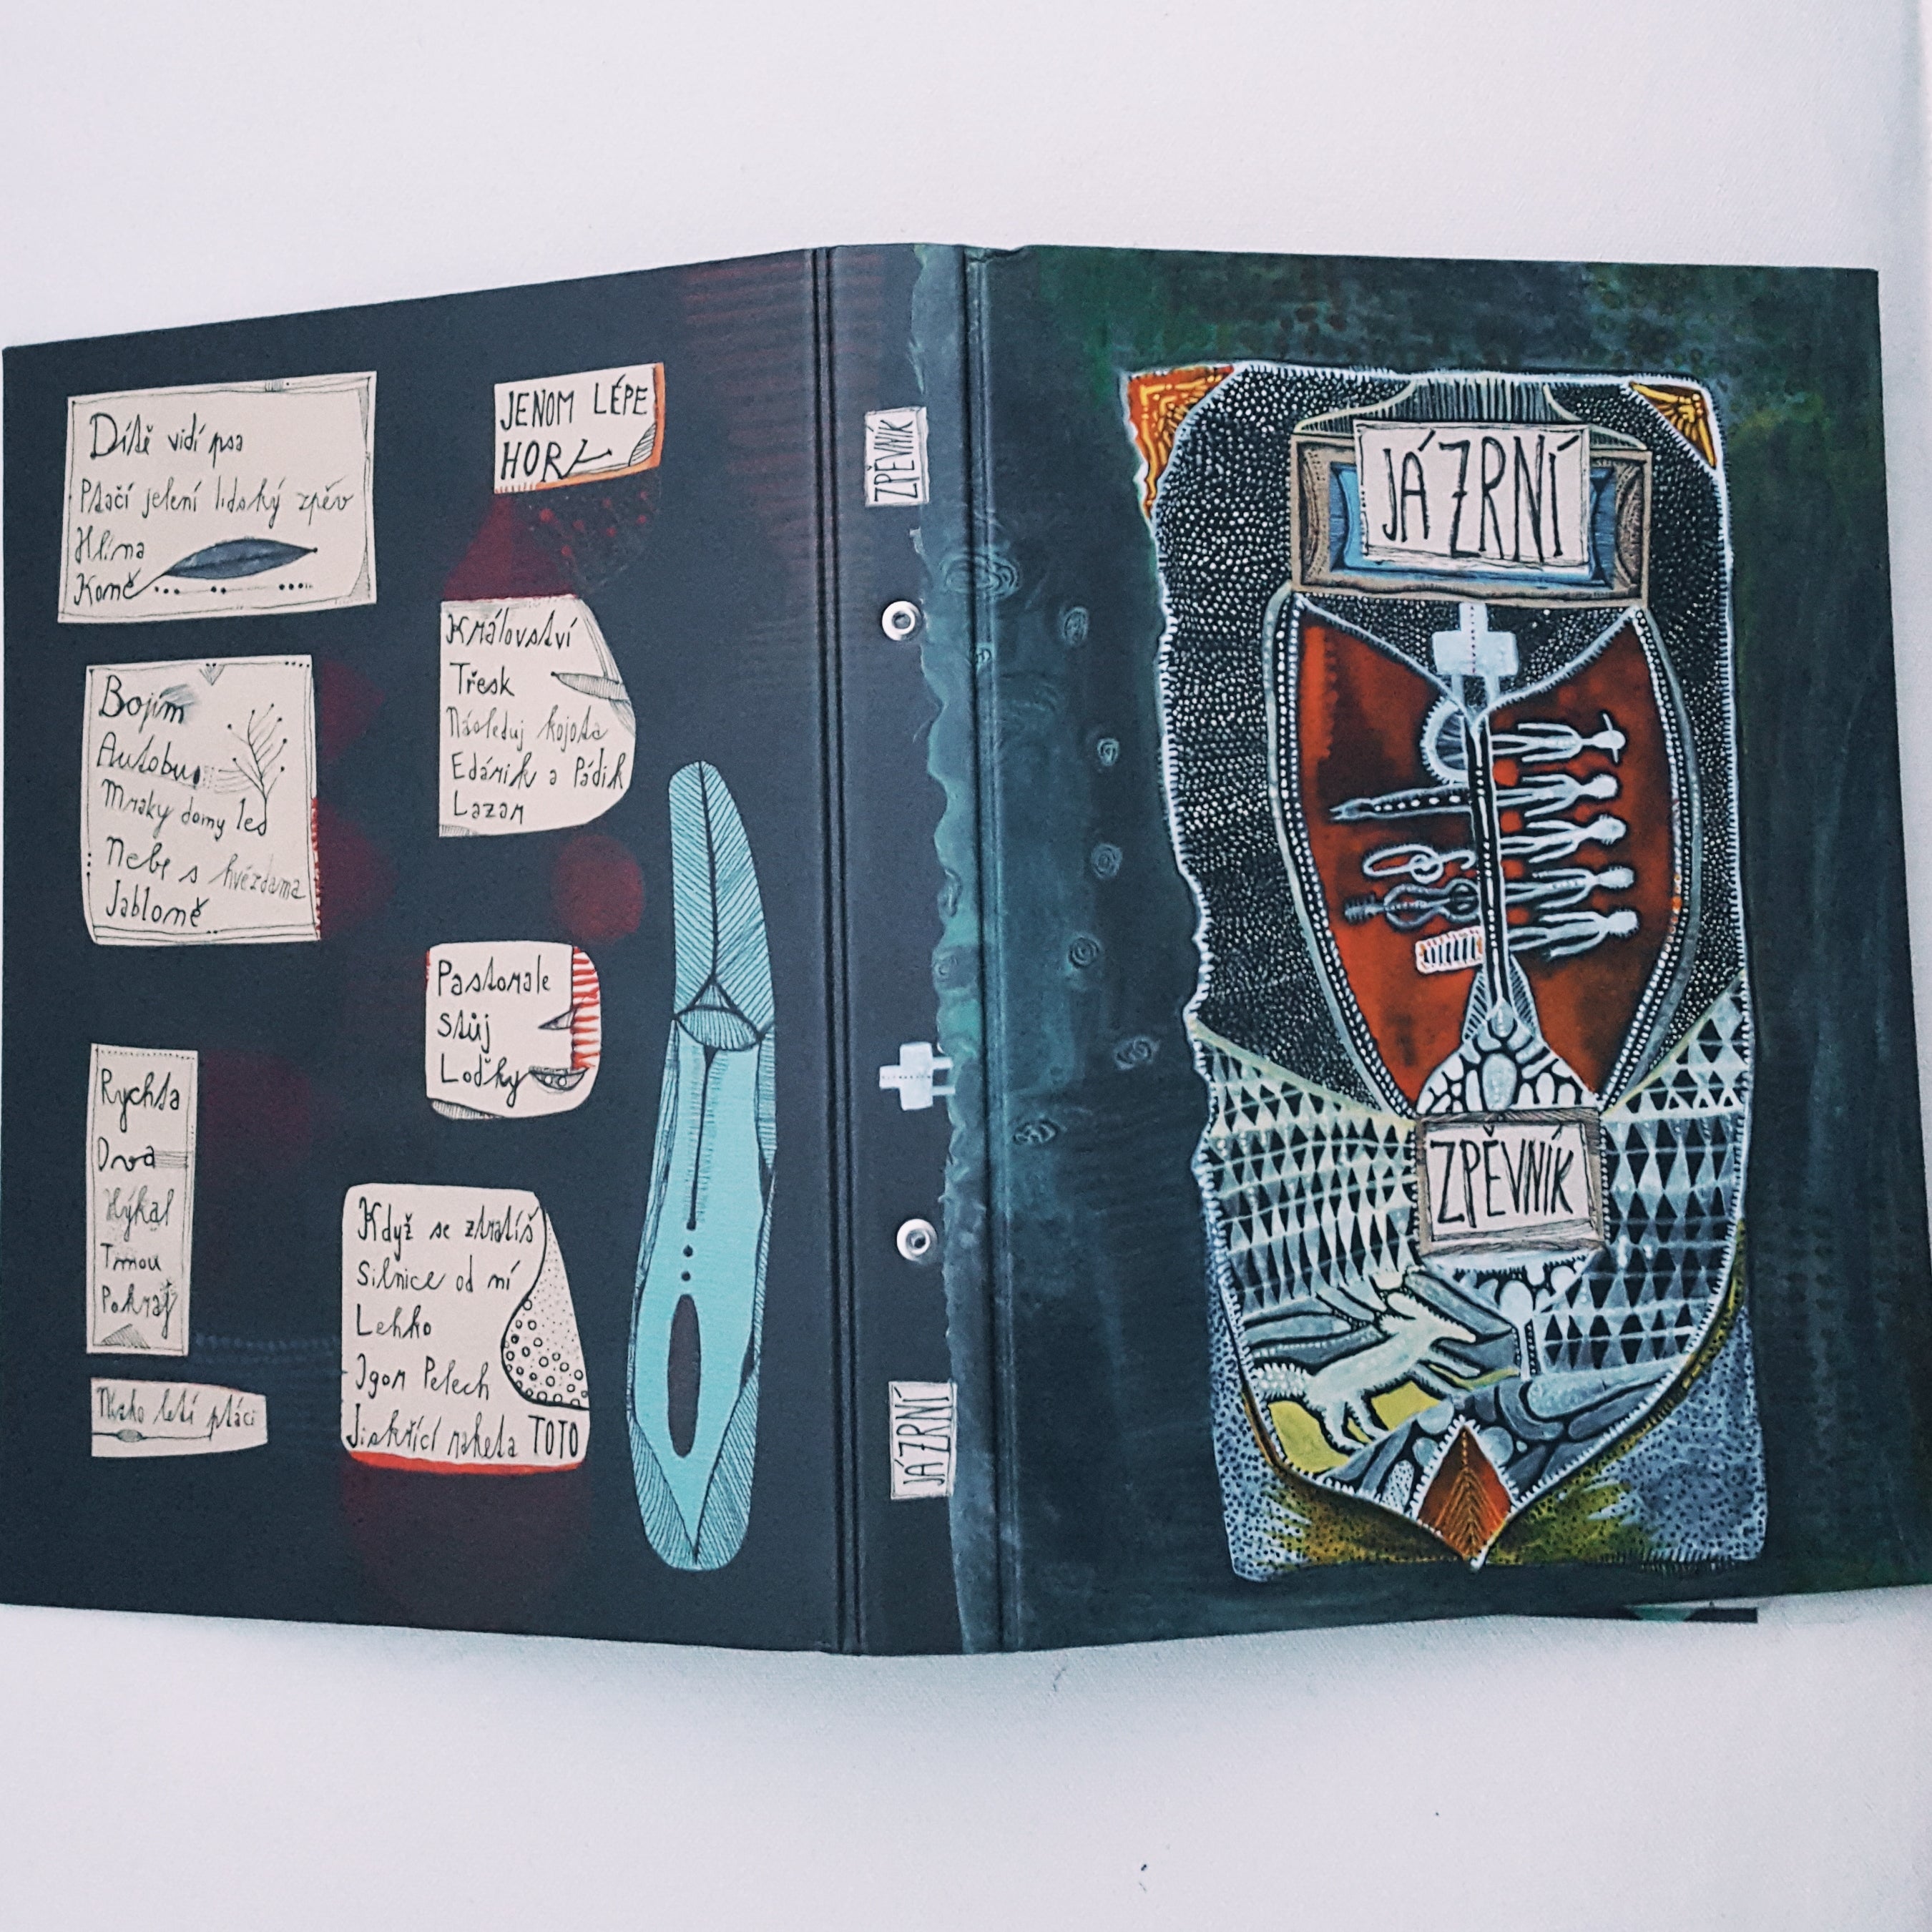 Dítě vidí psa
Ptačí jelení lidský zpěv
Hlína
Koně
Bojím
Autobus
Mraky domy led
Nebe s hvězdama
Jabloně
Rychta
Dva
Hýkal
Tmou
Pokrať
Nízko letí ptáci
JENOM LÉPE
HOŘ
Království
Třesk
Následuj kojota
Edárik a Pádik
Lazar
Pastorale
Stůj
Loďky
Když se ztratíš
Silnice od ní
Lehko
Igor Pelech
Jiskřící raketa TOTO
ZPĚVNÍK
JÁ ZRNÍ
JÁ ZRNÍ
ZPĚVNÍK